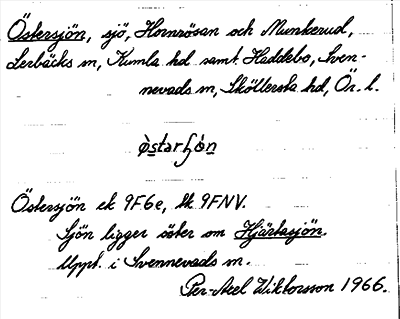 Östersjön, sjö, Hornrösan och Munkerud,
Lerbäcks sn, Kumla hd samt Haddebo, Sven-
nevads sn, Sköllersta hd, Ör. l.
ø̀starʃò̇n
Östersjön ek 9F6e, tk 9FNV.
Sjön ligger öster om Hjärtasjön.
Uppt. i Svennevads sn.
Per-Axel Wiktorsson 1966.